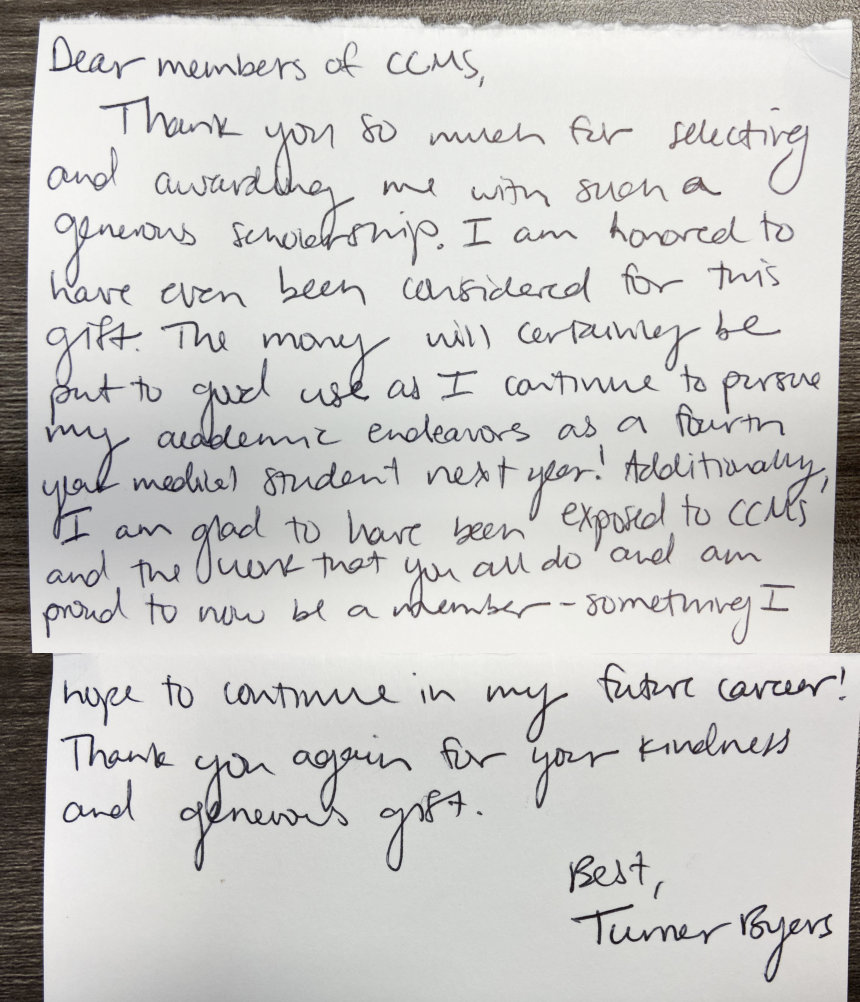 Dear members of CCMS,
Thank you so much for selecting
and awarding me with such a
generous scholarship. I am honored to
have even been considered for this
gift. The money will certainly be
put to good use as I continue to pursue
my academic endeavors as a fourth
year medical student next year! Additionally,
I am glad to have been exposed to CCMS
and the work that you all do and am
proud to now be a member - something I
hope to continue in my future career!
Thank you again for your kindness
and generous gift.
Best,
Turner Byers